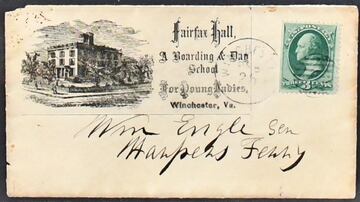 Fairfax Hall,
A Boarding & Day
School
For Young Ladies,
Winchester, Va.
Wm Engle Sen
Harpers Ferry